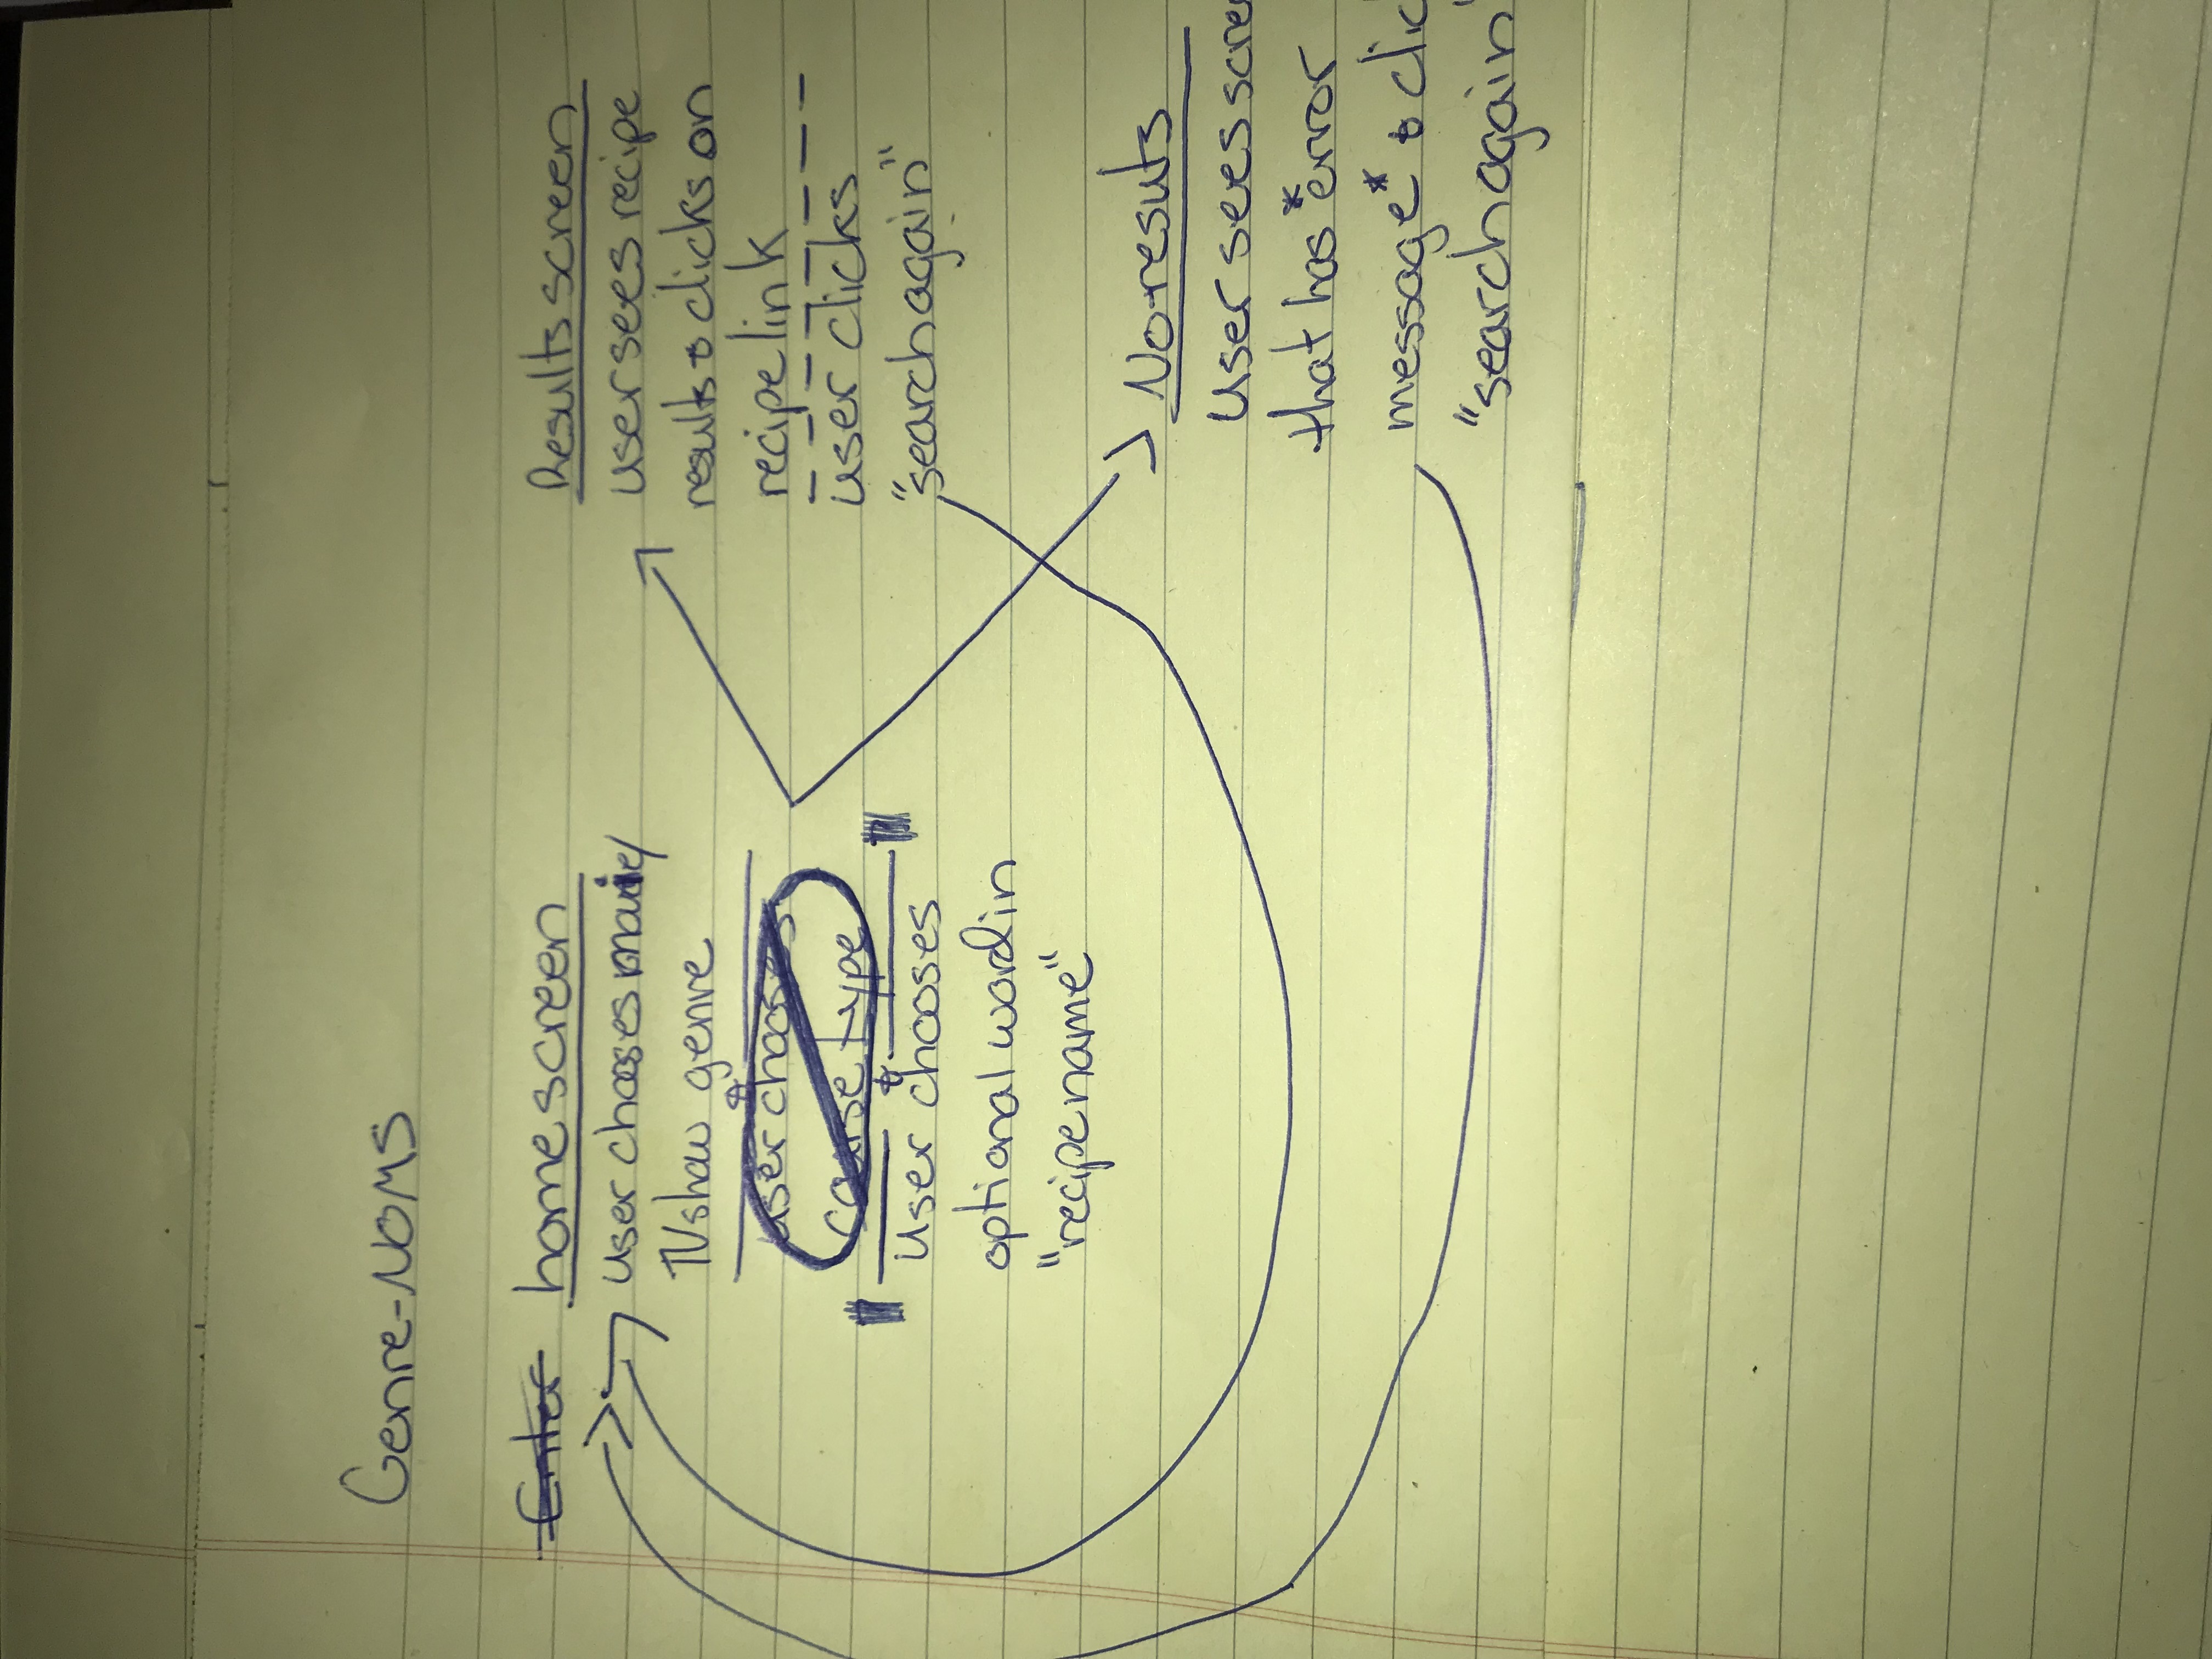 Genre-NOMS
Enter home screen
user chooses movie/
TV show genre
&
user chooses
course type
&
User chooses
optional word in
"recipe name"
Results screen
user sees recipe
results & clicks on
recipe link
user clicks
"search again"
No-resuts
User sees scre
that has *error
message* & clic
"search again"